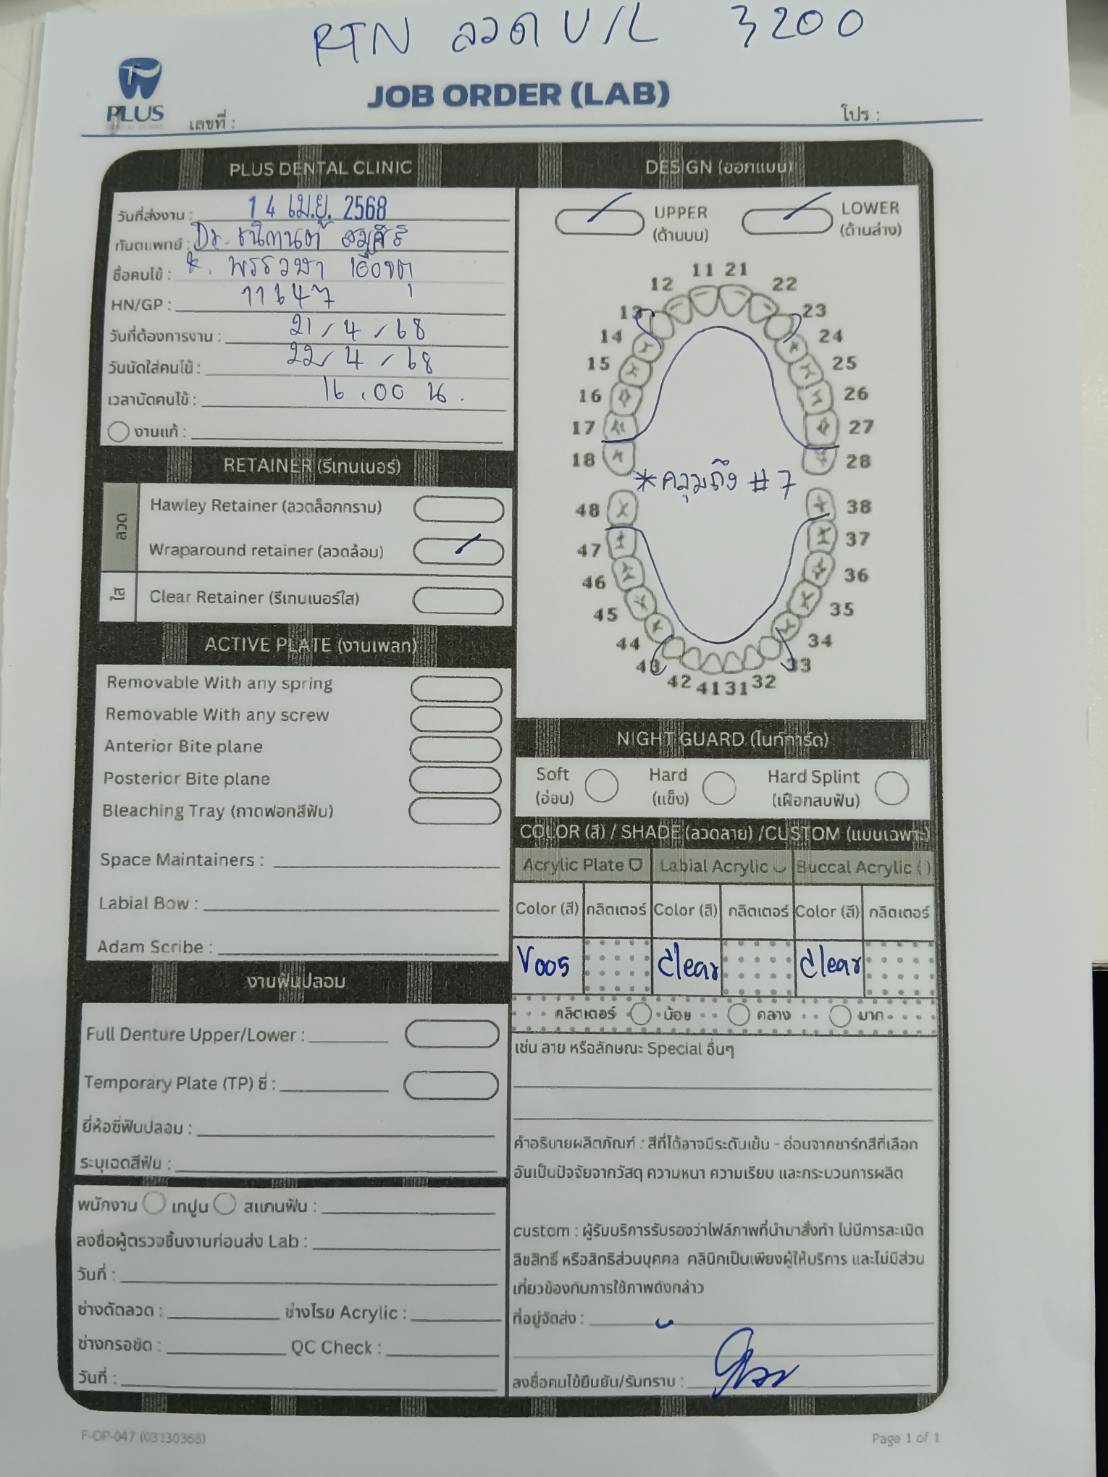 RTN ลวด U/L 3200
PLUS
JOB ORDER (LAB)
เลขที่ :
โปร :
PLUS DENTAL CLINIC
วันที่ส่งงาน : 14 เม.ย. 2568
ทันตแพทย์ : Dr.
ชื่อคนไข้ :
HN/GP : 11647
วันที่ต้องการงาน : 21/4/68
วันนัดใส่คนไข้ : 22/4/68
เวลานัดคนไข้ : 16.00 น.
งานแก้ :
RETAINER (รีเทนเนอร์)
ลวด
Hawley Retainer (ลวดล็อกกราม)
Wraparound retainer (ลวดล้อม)
ใส
Clear Retainer (รีเทนเนอร์ใส)
ACTIVE PLATE (งานเพลท)
Removable With any spring
Removable With any screw
Anterior Bite plane
Posterior Bite plane
Bleaching Tray (ถาดฟอกสีฟัน)
Space Maintainers :
Labial Bow :
Adam Scribe :
งานฟันปลอม
Full Denture Upper/Lower :
Temporary Plate (TP) ซี่ :
ยี่ห้อซี่ฟันปลอม :
ระบุเฉดสีฟัน :
พนักงาน เทปูน สแกนฟัน :
ลงชื่อผู้ตรวจชิ้นงานก่อนส่ง Lab :
วันที่ :
ช่างดัดลวด : ช่างโรย Acrylic :
ช่างกรอขัด : QC Check :
วันที่ :
DESIGN (ออกแบบ)
UPPER
(ด้านบน)
LOWER
(ด้านล่าง)
11 21
12 22
13 23
14 24
15 25
16 26
17 27
18 28
*คลุมถึง #7
48 38
47 37
46 36
45 35
44 34
43 33
42 41 31 32
NIGHT GUARD (ไนท์การ์ด)
Soft
(อ่อน)
Hard
(แข็ง)
Hard Splint
(เฝือกสบฟัน)
COLOR (สี) / SHADE (ลวดลาย) /CUSTOM (แบบเฉพาะ)
Acrylic Plate Labial Acrylic Buccal Acrylic
Color (สี) กลิตเตอร์ Color (สี) กลิตเตอร์ Color (สี) กลิตเตอร์
V005 Clear Clear
กลิตเตอร์ น้อย กลาง มาก
เช่น ลาย หรือลักษณะ Special อื่นๆ
คำอธิบายผลิตภัณฑ์ : สีที่ได้อาจมีระดับเข้ม - อ่อนจากชาร์ทสีที่เลือก
อันเป็นปัจจัยจากวัสดุ ความหนา ความเรียบ และกระบวนการผลิต
custom : ผู้รับบริการรับรองว่าไฟล์ภาพที่นำมาสั่งทำ ไม่มีการละเมิด
ลิขสิทธิ์ หรือสิทธิส่วนบุคคล คลินิกเป็นเพียงผู้ให้บริการ และไม่มีส่วน
เกี่ยวข้องกับการใช้ภาพดังกล่าว
ที่อยู่จัดส่ง :
ลงชื่อคนไข้ยืนยัน/รับทราบ :
F-OP-047 (03130368)
Page 1 of 1